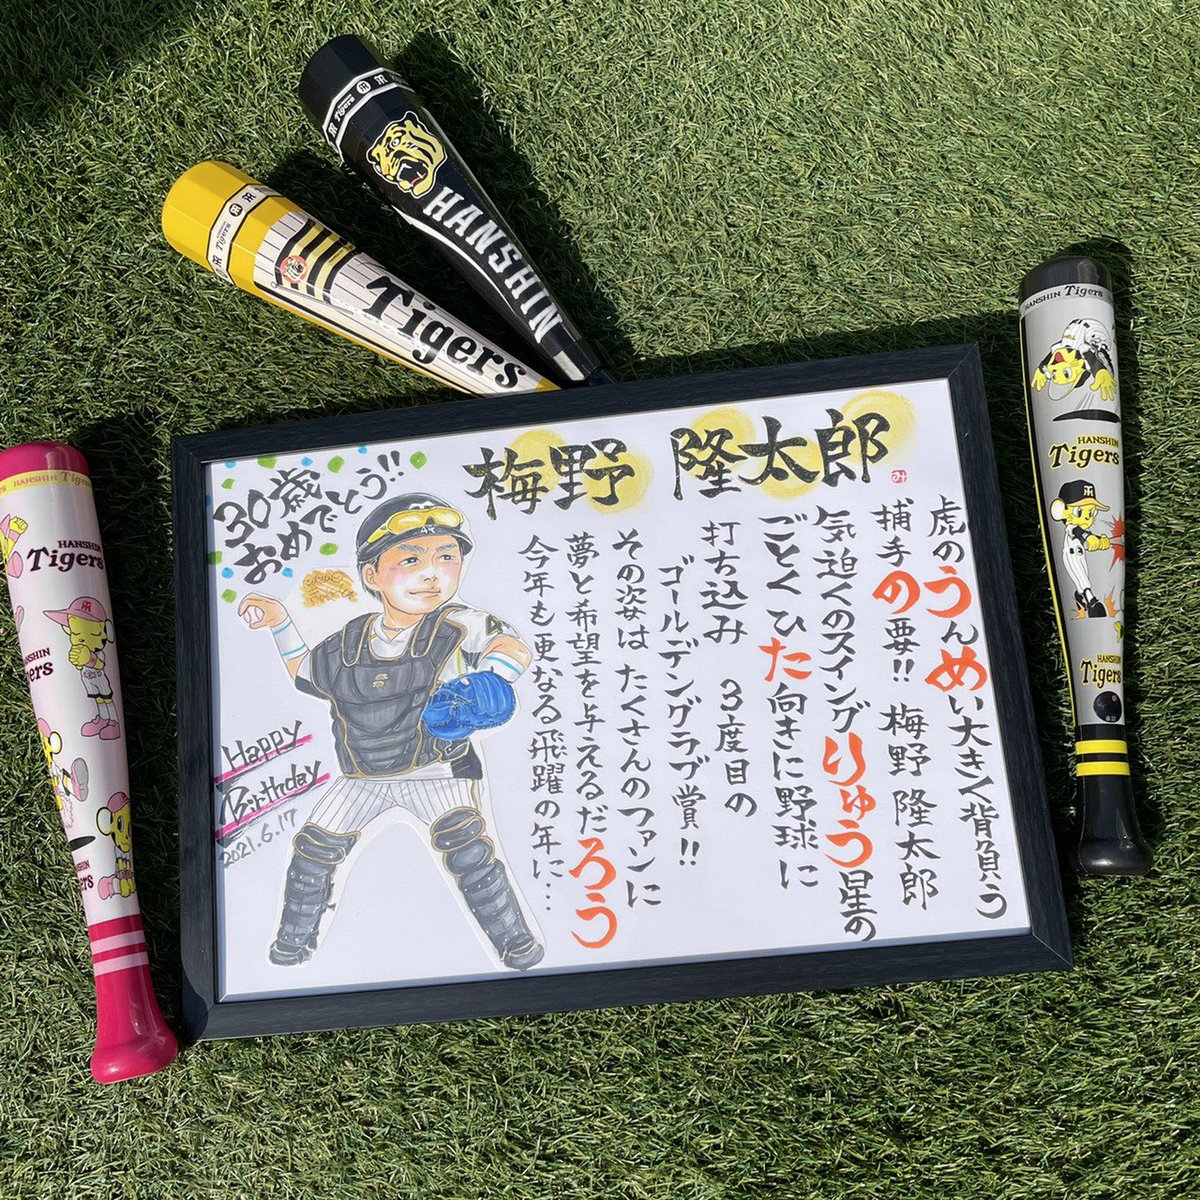 梅野 隆太郎
30歳
おめでとう!!
虎のうんめい大きく背負う
捕手の要!! 梅野隆太郎
気迫のスイングりゅう星の
ごとくひた向きに野球に
打ち込み 3度目の
ゴールデングラブ賞!!
その姿は たくさんのファンに
夢と希望を与えるだろう
今年も更なる飛躍の年に…
Happy
Birthday
2021.6.17
HANSHIN
Tigers
Tigers
Tigers
HANSHIN Tigers
HANSHIN
Tigers
HANSHIN
Tigers
HANSHIN Tigers
HANSHIN
Tigers
HANSHIN
ers
HANSHIN
gers